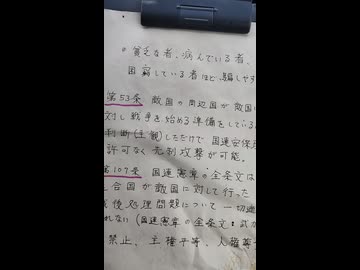 ◦ 貧乏な者、病んでいる者、
困窮している者ほど、騙しやす
第53条 敵国の周辺国が敵国に
対し戦争を始める準備をしている
判断(主観)しただけで国連安保
許可なく先制攻撃が可能。
第107条 国連憲章の全条文は
合国が敵国に対して行った
後処理問題について一切適
れない(国連憲章の全条文:武力
禁止、主権平等、人権尊